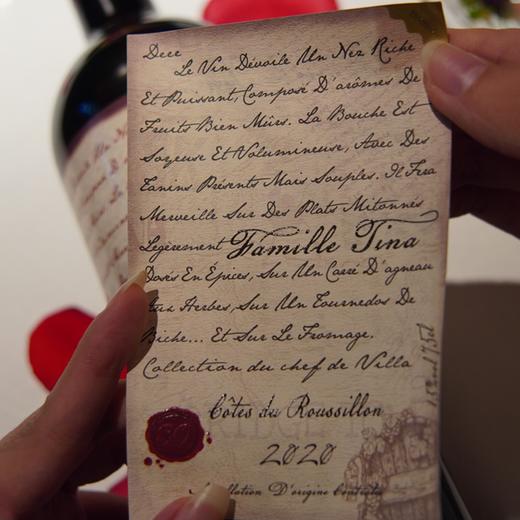 Dece
Le Vin Dévoile Un Nez Riche
Et Puissant, Composé D'arômes De
Fruits Bien Mûrs. La Bouche Est
Soyeuse Et Volumineuse, Avec Des
Tanins Présents Mais Souples. Il Fera
Merveille Sur Des Plats Mitonnés
Légèrement Famille Tina
Dosés En Épices, Sur Un Carré D'agneau
Aux Herbes, Sur Un Tournedos De
Biche... Et Sur Le Fromage.
Collection du chef de Villa
Côtes du Roussillon
2020
Appellation D'origine Contrôlée
75cl